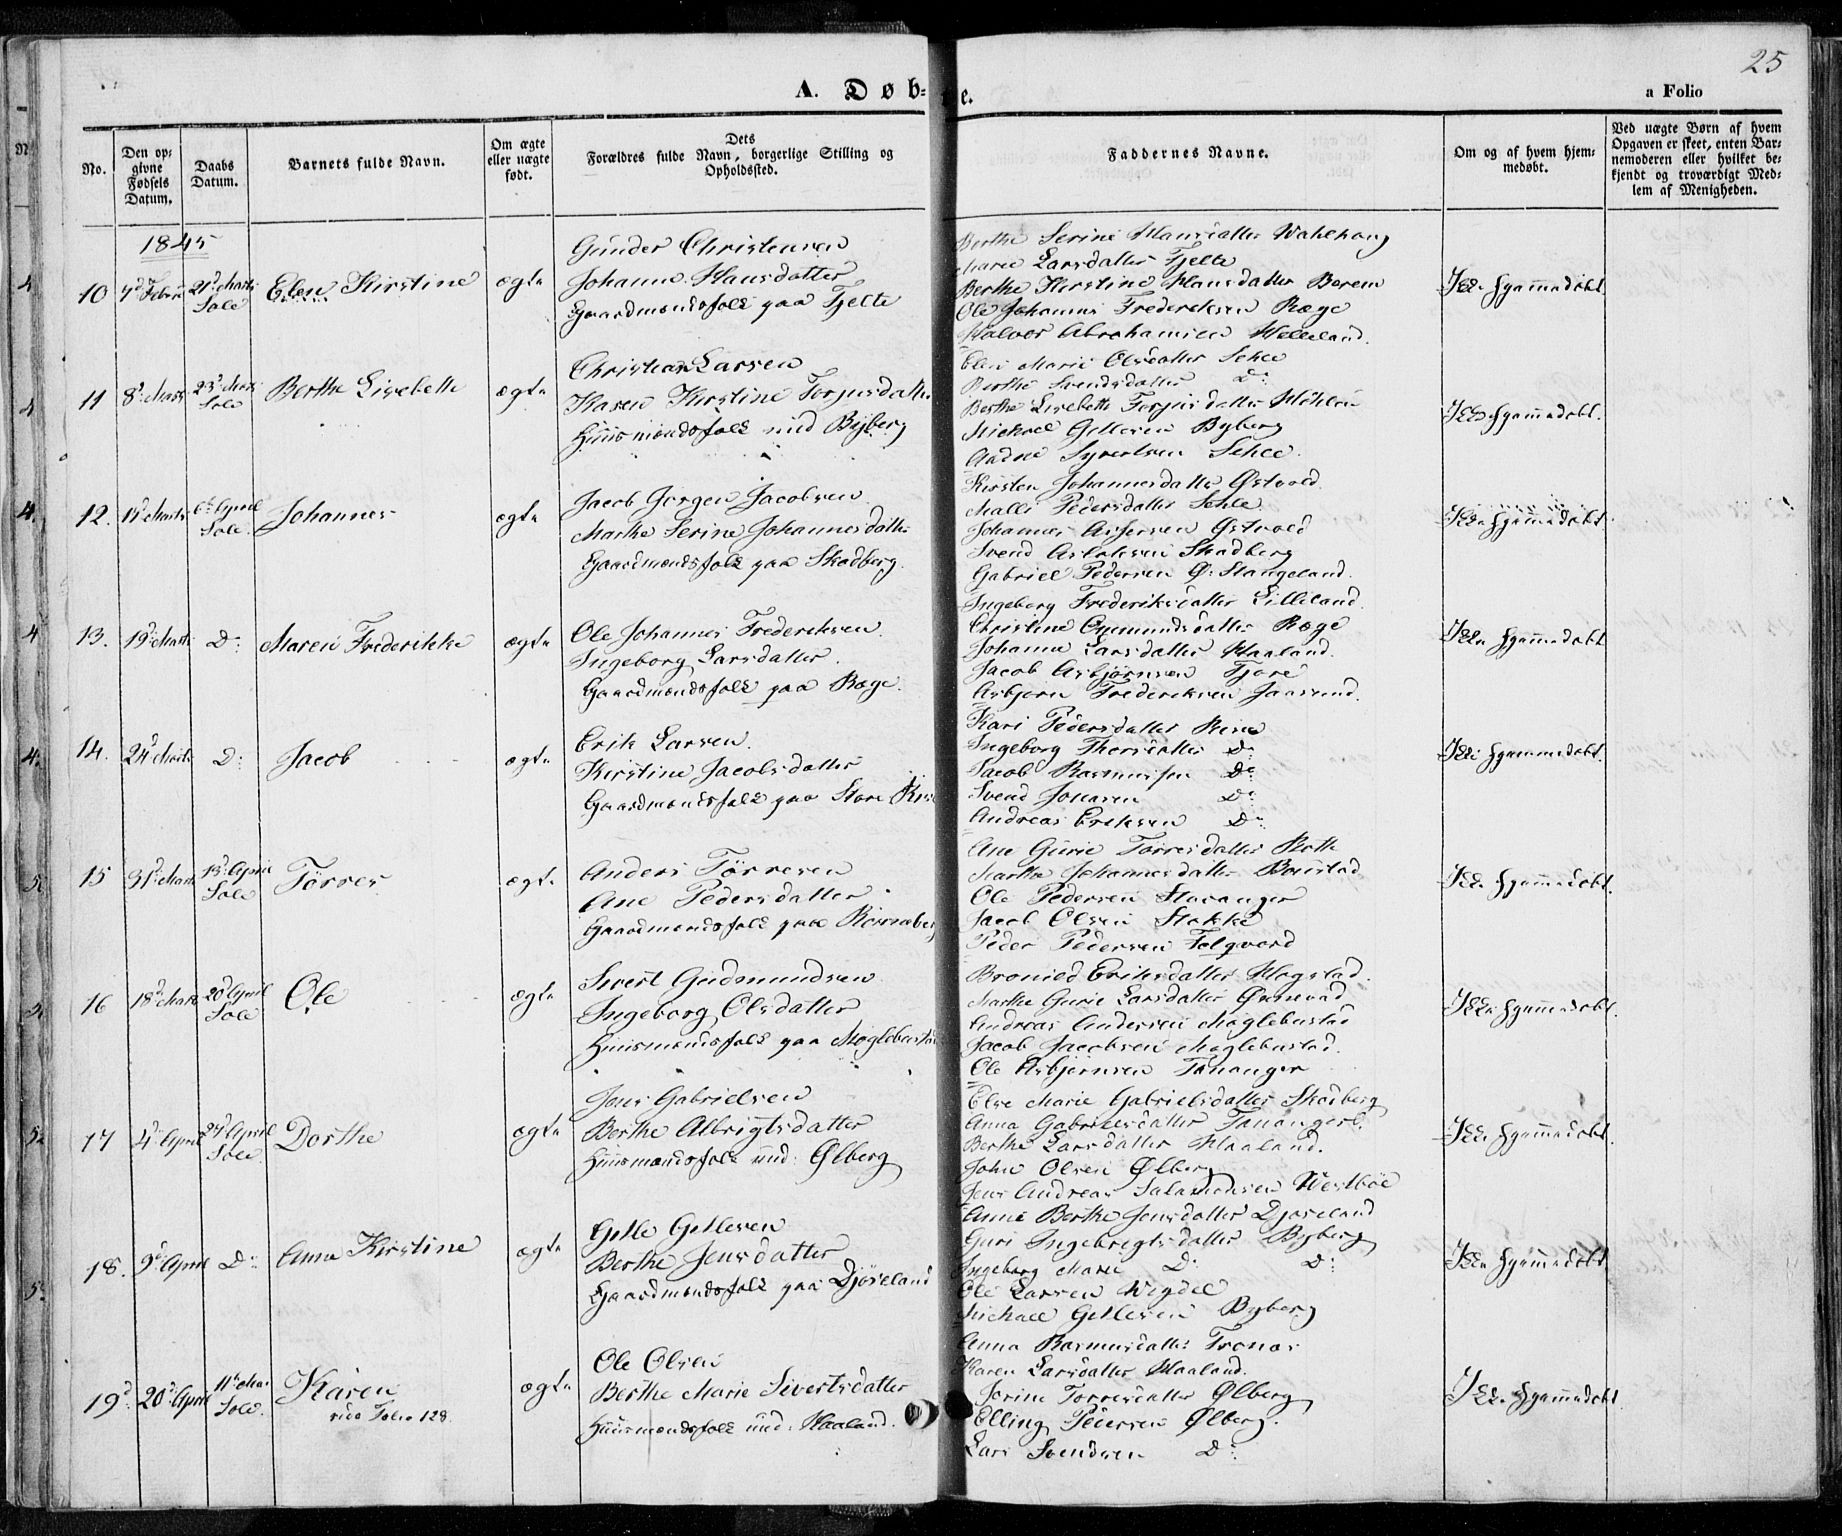 25
A. Døb-
e.
a Folio
No.
Den op-
givne
Fødsels
Datum.
Daabs
Datum.
Barnets fulde Navn.
Om ægte
eller uægte
født.
Dets
Forældres fulde Navn, borgerlige Stilling og
Opholdssted.
Faddernes Navne.
Om og af hvem hjem-
medøbt.
Ved uægte Børn af hvem
Opgaven er skeet, enten Bar-
nemoderen eller hvilket be-
kjendt og troværdigt Med-
lem af Menigheden.
1845
10
Sole
Elen Kirstine
ægte
Gunder Christensen
Johanne Hansdatter
Gaardmandsfolk paa Tjelte
Berthe Serine Hansdatter
Maren Larsdatter Tjelte
Berthe Kirstine Hansdatter
Ole Johannes Frederiksen Ræge
Halvor Abrahamsen Helleland.
Ikke hjemmedøbt.
11
8d Marts
23d Marts
Sole
Berthe Lisebette
ægte
Christian Larsen
Karen Kirstine Torjusdatter
Huusmandsfolk und Byberg
Elen Marie Olsdatter Sehle
Berthe Svendsdatter Do
Berthe Lisebette Torjusdatter
Michael Gitlesen Byberg
Aadne Syvertsen Sehle.
Ikke hjemmedøbt.
12.
6d April
Sole.
Johannes
ægte
Jacob Jørgen Jacobsen
Marthe Serine Johannesdatter
Gaardmandsfolk paa Skadberg.
Kirsten Johannesdatter Østvold
Malli Pedersdatter Sehle
Johannes Østvold
Svend Aslaksen Skadberg
Gabriel Pedersen Ø: Stangeland.
Ikke hjemmedøbt
13.
19d Marts
Do
Maren Frederikke
ægte
Ole Johannes Frederiksen.
Ingeborg Larsdatter.
Gaardmandsfolk paa Ræge.
Ingeborg Frederiksdatter Lilleland.
Christine Ommundsdatter Ræge
Johanne Larsdatter Haaland.
Jacob Asbjørnsen Tjore
Asbjørn Frederiksen Jaasund.
Ikke hjemmedøbt
14.
24d Marts
Do
Jacob
ægte
Erik Larsen.
Kirstine Jacobsdatter
Gaardmandsfolk paa Store
Kari Pedersdatter
Ingeborg Thorsdatter Do
Jacob Rasmussen Do
Svend Jonasen Do
Andreas Eriksen Do
Ikke hjemmedøbt.
15
31d Marts
13d April
Sole
Tørres
ægte
Anders Tørresen
Ane Pedersdatter.
Gaardmandsfolk paa
Ane Gurie Tørresdatter Roth
Marthe Johannesdatter
Ole Pedersen Stavanger
Jacob Olsen Stokke
Peder Pedersen
Ikke hjemmedøbt.
16
18d Marts
20d April
Sole
Ole
ægte
Sivert Gudmundsen
Ingeborg Olsdatter
Huusmandsfolk paa Møglebustad
Bronild Eriksdatter Hogstad.
Marthe Gurie Larsdatter
Andreas Andersen Møglebustad
Jacob Jacobsen Møglebustad.
Ole Asbjørnsen Tananger
Ikke hjemmedøbt.
17
4d April
27d April
Sole.
Dorthe
ægte
Jens Gabrielsen
Berthe Albrigtsdatter
Huusmandsfolk und: Ølberg
Else Marie Gabrielsdatter Skadberg
Anna Gabrielsdatter
Berthe Larsdatter Haaland.
John Olsen Ølberg
Jens Andreas Salamonsen Westbøe
Ikke hjemmedøbt.
18.
9d April
Do
Anna Kirstine
ægte
Gitle Gitlesen
Berthe Jensdatter
Gaardmandsfolk paa Djøseland
Anne Berthe Jensdatter Djøseland
Guri Ingebrigtsdatter Byberg
Ingeborg Marie Do Do
Ole Larsen Wigdel
Michael Gitlesen Byberg
Ikke hjemmedøbt
19d
20d April
11d Mai
Sole.
Karen
vide Folio 128.
ægte
Ole Olsen
Berthe Marie Sivertsdatter
Huusmandsfolk und: Haaland.
Anna Rasmusdatter
Karen Larsdatter Haaland.
Serine Torresdatter Ølberg
Elling Pedersen Ølberg.
Lars Svendsen Do
Ikke hjemmedøbt